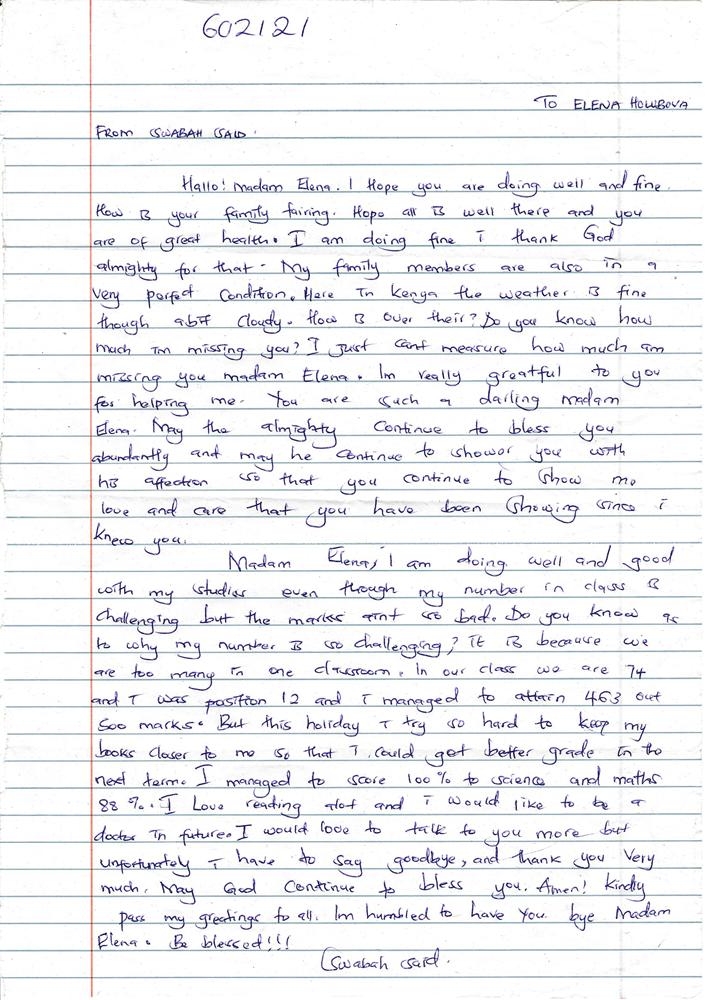 602121
TO ELENA HOLUBOVA
FROM SWABAH SAID.
Hallo! Madam Elena. I Hope you are doing well and fine.
How is your family fairing. Hope all is well there and you
are of great health. I am doing fine i thank God
almighty for that. My family members are also in a
very perfect condition. Here in Kenya the weather is fine
though abit cloudy. How is over their? Do you know how
much im missing you? I just cant measure how much am
missing you madam Elena. Im really greatful to you
for helping me. You are such a darling madam
Elena. May the almighty continue to bless you
abundantly and may he continue to shower you with
his affection so that you continue to show me
love and care that you have been showing since i
knew you.
Madam Elena, I am doing well and good
with my studies even though my number in class is
challenging but the marks aint so bad. Do you know as
to why my number is so challenging? It is because we
are too many in one classroom. In our class we are 74
and I was position 12 and i managed to attain 463 out
500 marks. But this holiday I try so hard to keep my
books closer to me so that I could get better grade in the
next term. I managed to score 100% to science and maths
88%. I Love reading alot and i would like to be a
doctor in future. I would love to talk to you more but
unfortunately i have to say goodbye, and thank you very
much. May God continue to bless you. Amen! Kindly
pass my greetings to all. Im humbled to have you. bye Madam
Elena. Be blessed!!!
Swabah said.